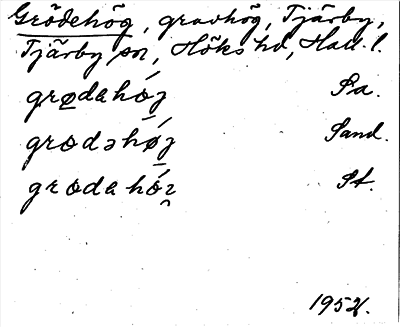 Grödehög, gravhög, Tjärby,
Tjärby sn, Höks hd, Hall. l.
grødahóʒ Pa.
grodəhǿʒ Sand.
grodahóʒ̯ St.